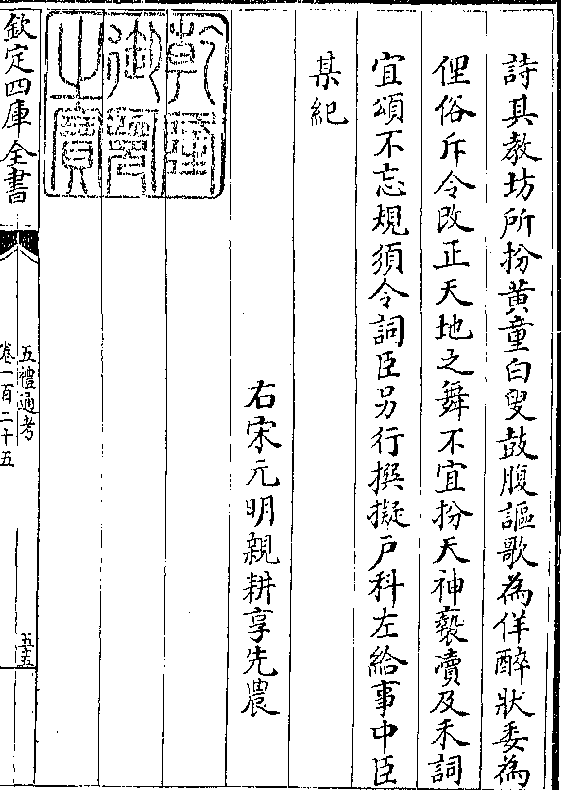 詩其教坊所扮黄童白叟鼓腹謳歌為佯醉狀委為
俚俗斥令改正天地之舞不宜扮天神褻瀆及禾詞
宜頌不忘規須令詞臣另行撰擬戸科左給事中臣
某紀
右宋元明親耕享先農
乾隆
御覽
之寶
欽定四庫全書
五禮通考
卷一百二十五
五五